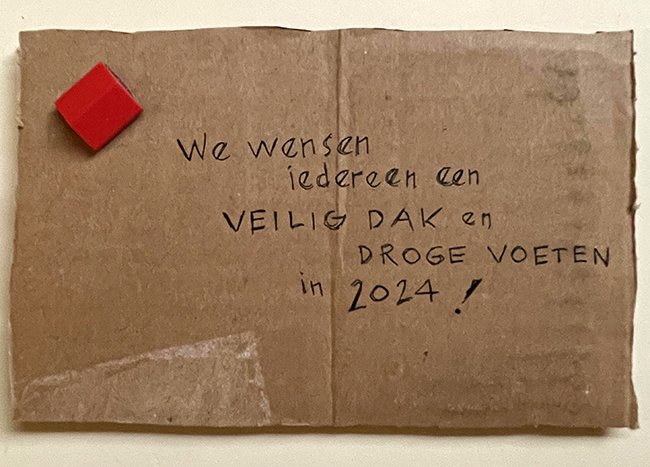 We wensen
iedereen een
VEILIG DAK en
DROGE VOETEN
in 2024!